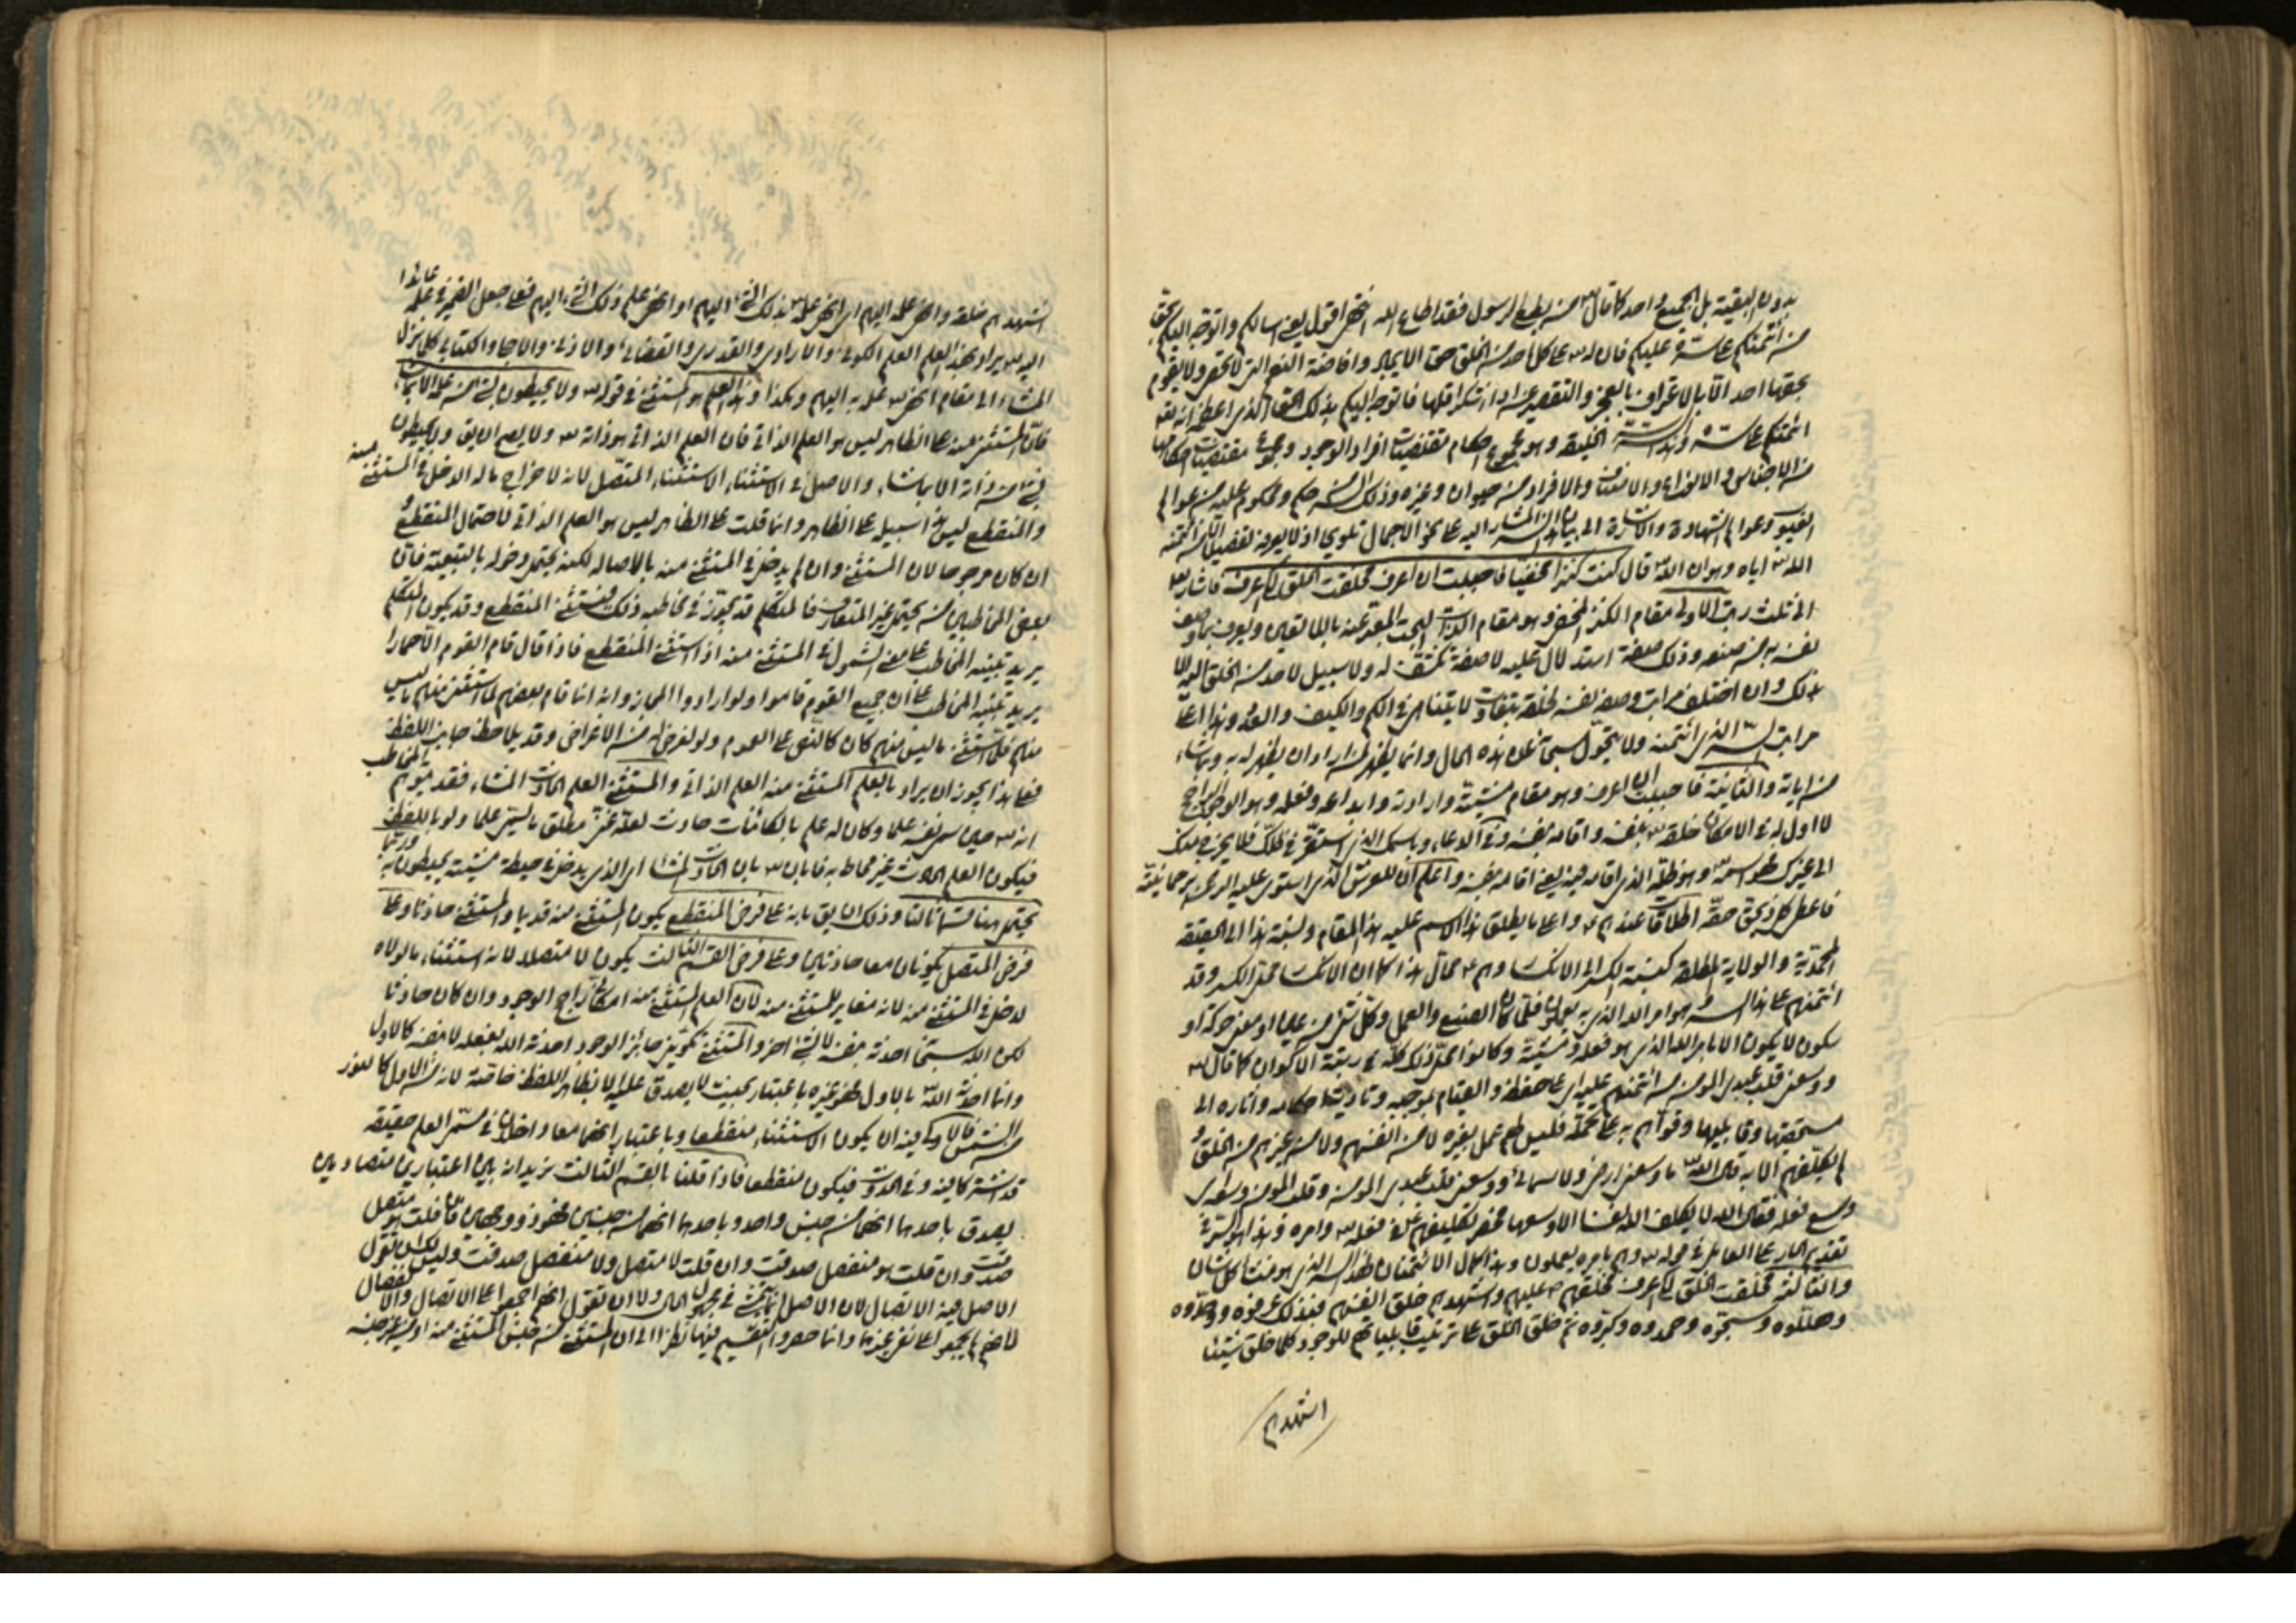 بدون البقية بل الجميع واحد كما قال من يطع الرسول فقد اطاع الله انتهى اقول يعني اسالكم واتوجه اليكم بحق
من ائتمنكم على سره عليكم فان له على كل احد من الخلق حق الايجاد وافاضة النعم التي لا تحصى ولا يقوم
بحقها احد الا بالاعتراف بالعجز والتقصير عن اداء شكر اقلها فاتوجه اليكم بذلك الحق الذي اعظمه انه
ائتمنكم على سره وهذا السر الخليقة وهو مجموع احكام مقتضيات افراد الوجود ومجموع مقتضيات احكامها
من الاجناس والانواع والاصناف والافراد من حيوان وغيره وذلك السر حكم ومحكوم عليه من عوالم
الغيوب وعوالم الشهادة والاشارة الى بيان السر المشار اليه على نحو الاجمال تلويح اذ لا يعرفه تفصيلا الا من ائتمنه
الله اياه وهو ان الله قال كنت كنزا مخفيا فاحببت ان اعرف فخلقت الخلق لكي اعرف فاشار
الى ثلث رتب الاولى مقام الكنز المخفي وهو مقام الذات البحت المعبر عنه باللا تعين ويعرف بما وصف
نفسه به من صنعه وذلك صفة استدلال عليه لا صفة تكشف له ولا سبيل لاحد من الخلق اليه الا
بذلك وان اختلف مراتب وصف نفسه لخلقه بتفاوت لا يتناهى في الكم والكيف والعدد وهذا اعلى
مراتب السر الذي ائتمنه ولا يتحول سبحانه عن هذه الحال وانما يظهر لمن اراد ان يظهر له به وبما شاء
من اياته والثانية فاحببت ان اعرف وهو مقام مشيته وارادته وابداعه وفعله وهو الوجود الراجح
لا اول له في الامكان خلقه بنفسه واقامه بنفسه وفي الدعاء وباسمك الذي استقر في ظلك فلا يخرج منك
الى غيرك هو اسمه وهو ظله الذي اقامه فيه يعني اقامه بنفسه واعلم ان للعرش الذي استوى عليه الرحمن برحمانيته
فاعطى كل ذي حق حقه اطلاقات عندهم واعلى ما يطلق هذا الاسم عليه هذا المقام ونسبة هذا الى الحقيقة
المحمدية والولاية المطلقة كنسبة الكسر الى الانكسار وهم محال هذا كما ان الانكسار محل الكسر وقد
ائتمنهم على هذا السر وهو امر الله الذي به يعملون فلما كان الصنع والعمل وكل شيء من عليا او معنى حركة او
سكون لا يكون الا بامر الله الذي هو فعله ومشيته وكانوا محل ذلك كله في رتبة الاكوان كما قال
ووسعني قلب عبدي المؤمن ائتمنهم عليه اي على حفظه والقيام بموجبه وتادية احكامه واثاره الى
مستحقيها وقابليها وقواهم به على تحمله فليس لهم عمل بغيره لا من انفسهم ولا من غيرهم من الخلق و
لم يكلفهم الا به قال الله ما وسعني ارضي ولا سمائي ووسعني قلب عبدي المؤمن وقلب المؤمن
وسع فعله فقال الله لا يكلف الله نفسا الا وسعها فحصر تكليفهم على فعله وامره وهذا هو السر في
تقديم الجار على العامل في قوله وهم بامره يعملون وهذا كمال الائتمان لهذا السر الذي هو منشأ كل شان
والثالثة فخلقت الخلق لكي اعرف فخلقهم عليهم واشهدهم خلق انفسهم فبذلك عرفوه ووحدوه
وهللوه وسبحوه وحمدوه وكبروه ثم خلق الخلق على ترتيب قابلياتهم للوجود كلما خلق شيئا
اشهدهم
اشهدهم خلقه وانهى علمه اليهم اي انهى علمه بذلك الشيء اليهم او انهى علم ذلك الشيء اليهم فعلى جعل الضمير في علمه عائدا
اليه يراد بهذا العلم العلم الكوني والارادي والقدري والقضائي والاذني والاجلي والكتابي كل منزل
المشاء الى مقام انهى علمه به اليهم وهكذا وهذا العلم هو المستثنى في قوله ولا يحيطون بشيء من علمه الا بما شاء
فان المستثنى منه على الظاهر ليس هو العلم الذاتي فان العلم الذاتي هو ذاته ولا يصح ان يق ولا يحيطون
بشيء من ذاته الا بما شاء والاصل في الاستثناء الاستثناء المتصل لانه لاخراج ما له الدخل في المستثنى منه
والمنقطع ليس هذا سبيله على الظاهر وانما قلت على الظاهر ليس هو العلم الذاتي لاحتمال المنقطع و
ان كان مرجوحا لان المستثنى وان لم يدخل في المستثنى منه بالاصالة لكنه يحتمل دخوله بالتبعية فان
بعض المخاطبين من يحتمل غير المتعارف فالمتكلم قد يجوز في مخاطبه ذلك فيستثني المنقطع وقد يكون المتكلم
يريد تنبيه المخاطب على معنى الشمول في المستثنى منه اذا استثنى المنقطع فاذا قال قام القوم الا حمارا
يريد تنبيه المخاطب على ان جميع القوم قاموا ولو ارادوا المجاز وانه انما قام بعضهم لما استثنى منهم ما ليس
منهم فلما استثنى ما ليس منهم كان كالنص على العموم ولو لغرض له من الاغراض وقد يلاحظ جانب اللفظ
فعلى هذا يجوز ان يراد بالعلم المستثنى منه العلم الذاتي والمستثنى العلم الحادث المشاء فقد يتوهم المخاطب
انه حين سمى نفسه علما وكان له علم بالكائنات حادث لعله عنى مطلق ما يسمى علما ولو باللفظ
فيكون العلم الحادث غير محاط به فابان بان الحادث المشاء اي الذي يدخل في حيطة مشيته يحيطون به وربما
يحتمل هنا قسما ثالثا وذلك ان يق بانه على فرض المنقطع يكون المستثنى منه قديما والمستثنى حادثا وعلى
فرض المتصل يكونان معا حادثين وعلى فرض القسم الثالث يكون لا متصلا لانه استثناء ما لولاه
لدخل في المستثنى منه لانه مغاير للمستثنى منه لان العلم المستثنى منه امكاني راجح الوجود وان كان حادثا
لكن الله سبحانه احدثه بنفسه لا بشيء اخر والمستثنى تكويني جائز الوجود احدثه الله بفعله لا بنفسه كالاول
وانما احدثه الله بالاول فهو غيره باعتبار بحيث لا يصدق عليه الا بظاهر اللفظ خاصة لانه من الاول كالنور
من الشمس فالاولى فيه ان يكون الاستثناء منقطعا وباعتبار انهما معا داخلان في مسمى العلم حقيقة
قد اشتركا فيه وفي الحدوث فيكون منقطعا فاذا قلنا بالقسم الثالث نريد انه بين اعتبارين متضادين
يصدق باحدهما انهما من جنس واحد وباحدهما انهما من جنسين فهو ذو وجهين فان قلت هو متصل
صدقت وان قلت هو منفصل صدقت وان قلت لا متصل ولا منفصل صدقت وليس لك ان تقول
الاصل فيه الاتصال لان الاصل انما يتمشى في مجهول الحال ولا ان تقول انهم اجمعوا على الاتصال والانفصال
لانهم لم يجمعوا على نفي غيرها وانما حصروا التقسيم فيها نظرا الى ان المستثنى من جنس المستثنى منه او من غير جنسه